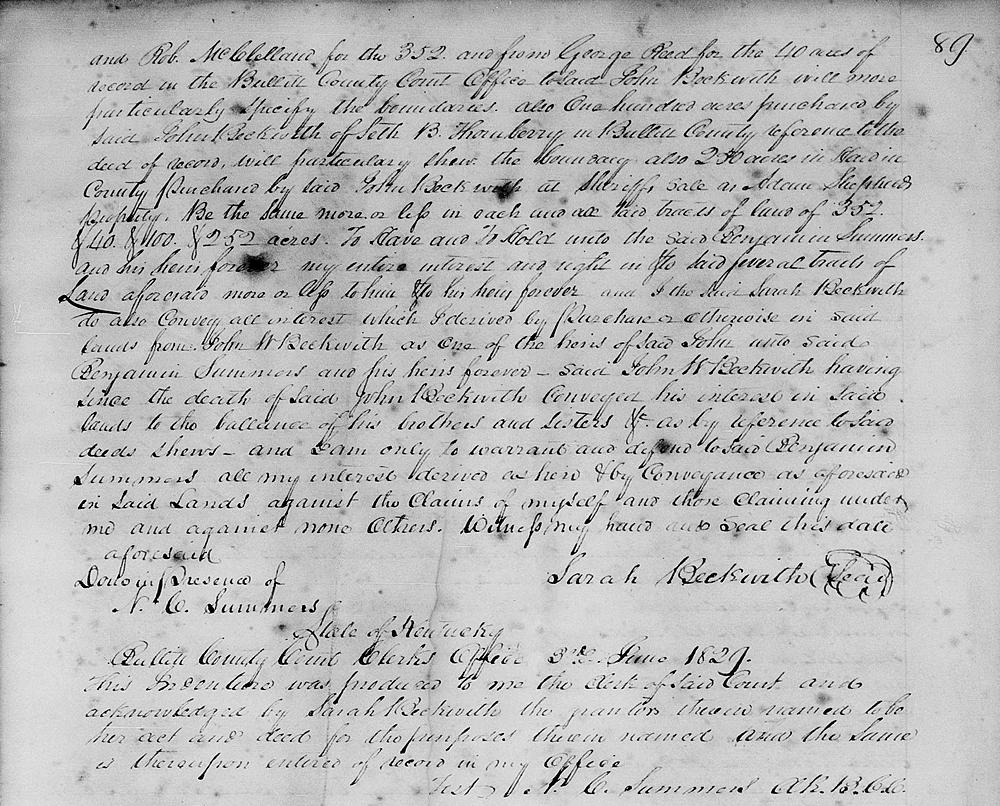 89
and Rob. McClelland for the 352. and from George Reed for the 40 acres of
record in the Bullitt County Court Office to said John Beckwith will more
particularly specify the boundaries. also One hundred acres purchased by
said John Beckwith of Seth B. Thornberry in Bullitt County reference to the
deed of record, will particularly shew the boundary also 250 acres in Hardin
County Purchased by said John Beckwith at Sheriffs Sale as Adam Shepherds
property. Be the same more or less in each and all said tracts of land of 352.
& 40. & 100. & 252 acres. To Have and To Hold unto the said Benjamin Summers.
and his heirs forever my entire interest and right in & to said several tracts of
Land aforesaid more or less to him & to his heirs forever and I the said Sarah Beckwith
do also Convey all interest which I derived by Purchase or otherwise in said
lands from John W Beckwith as one of the heirs of said John unto said
Benjamin Summers and his heirs forever – said John W Beckwith having
since the death of said John Beckwith Conveyed his interest in said
lands to the ballance of his brothers and sisters &c. as by reference to said
deeds shews – and I am only to warrant and defend to said Benjamin
Summers all my interest derived as heir & by Conveyance as aforesaid
in said Lands against the Claims of myself and those Claiming under
me and against none Others. Witness my hand and seal this date
aforesaid
Done in Presence of Sarah Beckwith (Seal)
N. C. Summers
State of Kentucky
Bullitt County Court Clerks Office 3rd. June 1829.
This Indenture was produced to me the Clerk of said Court and
acknowledged by Sarah Beckwith the grantor therein named to be
her act and deed for the purposes therein named and the same
is thereupon entered of record in my Office
Test N. C. Summers Clk. B. C. C.